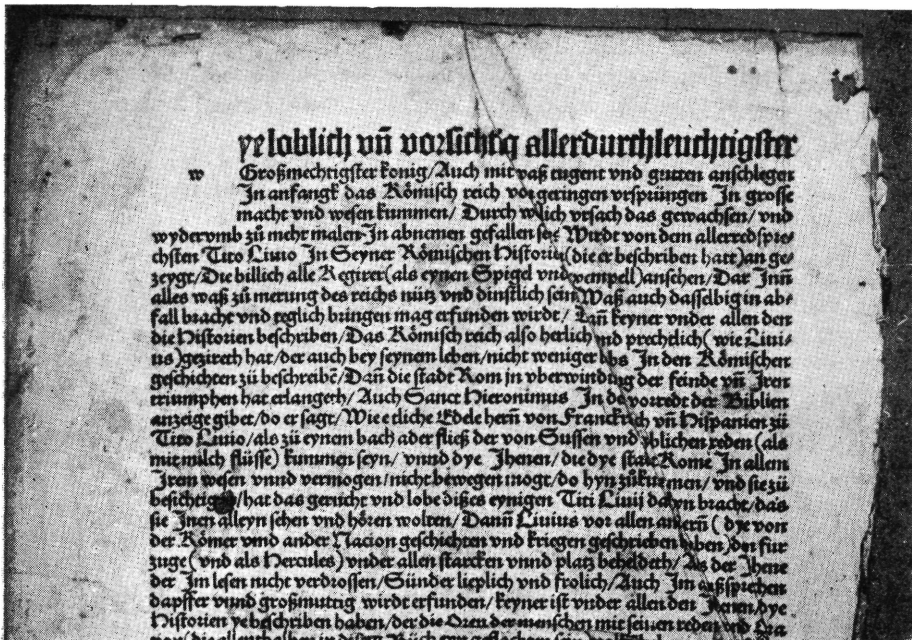 ye loblich vn̄ vorsichtig allerdurchleuchtigster
w Großmechtigster konig/Auch mit waß tugent vnd gutten anschlegen
In anfangk das Rômisch reich von geringen vrsprüngen In grosse
macht vnd wesen kummen/ Durch welich vrsach das gewachsen/ vnd
wydervmb zů mehr malen In abnemen gefallen sey Wirdt von dem allerredspre-
chsten Tito Liuio In Seyner Rômischen Historien(die er beschriben hatt)an ge-
zeygt/Die billich alle Regirer(als eynen Spigel vnd exempell)ansehen/Dar Inn̄
alles waß zů merung des reichs nütz vnd dinstlich sein Waß auch dasselbig in ab-
fall bracht vnd teglich bringen mag erfunden wirdt/ Dan̄ keyner vnder allen den
die Historien beschriben/Das Rômisch reich also herlich vnd prechtlich(wie Liui-
us)gezireth hat/der auch bey seynem leben/nicht weniger lobs In den Rômischen
geschichten zů beschreibē/Dan̄ die stadt Rom in vberwindung der feinde vn̄ Iren
triumphen hat erlangeth/ Auch Sanct Hieronimus In der vorredt der Biblien
anzeige gibet/do er sagt/Wie etliche Edele hern̄ von Franckrich vn̄ Hispanien zů
Tito Liuio/als zů eynem bach ader fließ der von Sussen vnd yblichen reden (als
mit milch flüsse) kummen seyn/ vnnd dye Jhenen/die dye statt Rome In allem
Irem wesen vnnd vermogen/nicht bewegen mogt/do hyn zůkummen/ vnd sie zů
besichtigen/hat das gerucht vnd lobe dißes eynigen Titi Liuij dahyn bracht/das
sie Inen alleyn sehen vnd hören wolten/Dann̄ Liuius vor allen andern̄ ( dye von
der Römer vnd ander Nacion geschichten vnd kriegen geschrieben haben)den für
zuge(vnd als Hercules)vnder allen starcken vnnd platz beheldeth/ Als der Jhene
der Im lesen nicht verdrossen/Sünder lieplich vnd frolich/Auch Im außsprechen
dapffer vnnd großmutig wirdt erfunden/keyner ist vnder allen den Jhenen/dye
Historien ye beschriben haben/der die Oren der menschen mit seinen reden vnd
die allenthalben in disen Büchern